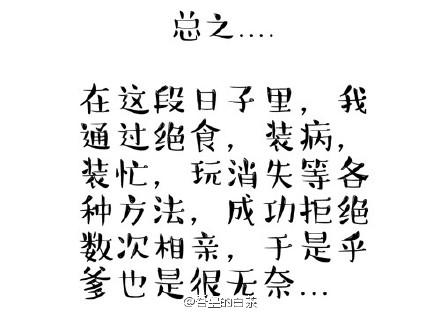 总之....
在这段日子里，我
通过绝食，装病，
装忙，玩消失等各
种方法，成功拒绝
数次相亲，于是乎
爹也是很无奈...